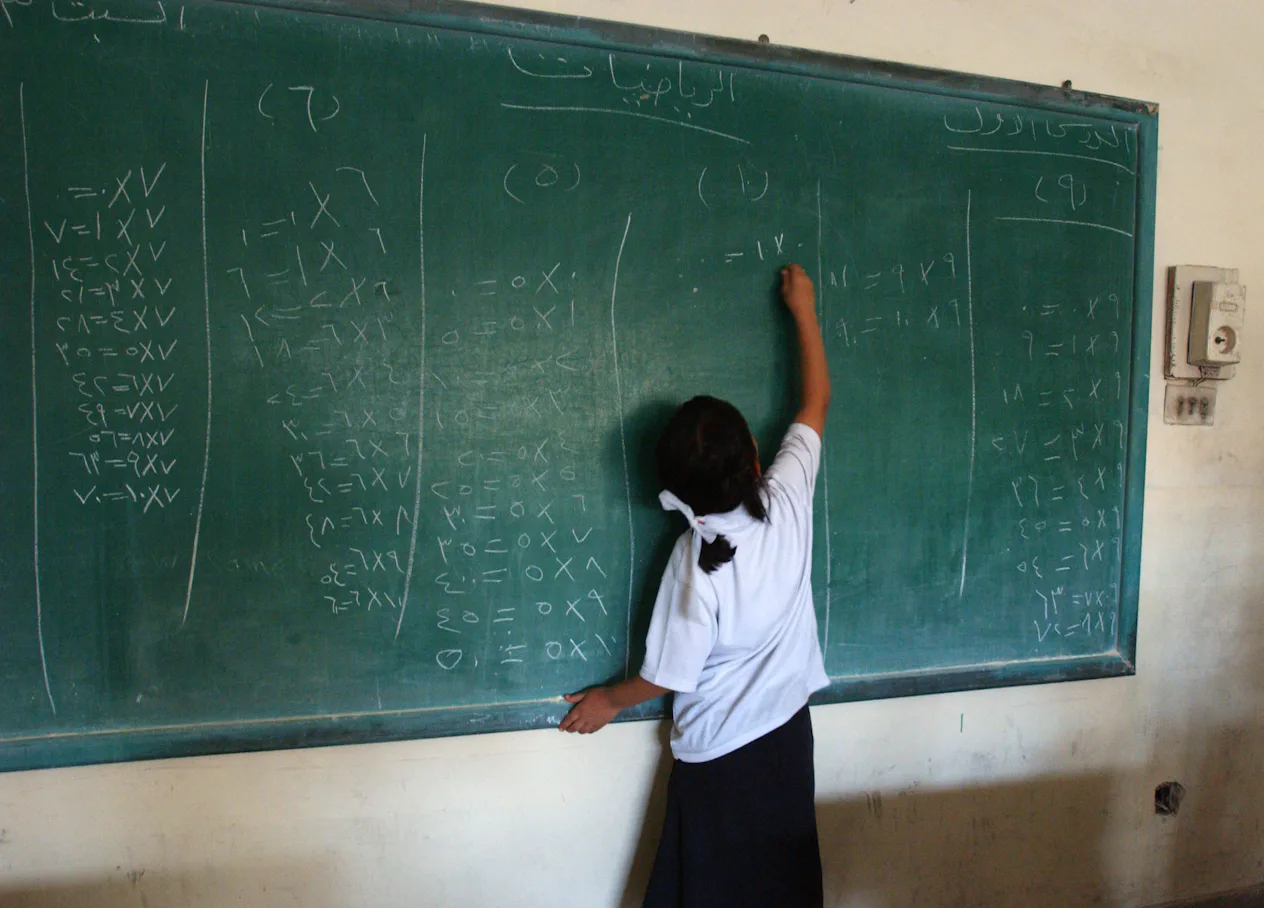 الدرس الاول
الرياضيات
السبت
(٩)
٩ × ٠ = ٠
٩ × ١ = ٩
٩ × ٢ = ١٨
٩ × ٣ = ٢٧
٩ × ٤ = ٣٦
٩ × ٥ = ٤٥
٩ × ٦ = ٥٤
٩ × ٧ = ٦٣
٩ × ٨ = ٧٢
٩ × ٩ = ٨١
٩ × ١٠ = ٩٠
(١٠)
٠ × ١ =
(٥)
٠ × ٥ = ٠
١ × ٥ = ٥
٢ × ٥ = ١٠
٣ × ٥ = ١٥
٤ × ٥ = ٢٠
٥ × ٥ = ٢٥
٦ × ٥ = ٣٠
٧ × ٥ = ٣٥
٨ × ٥ = ٤٠
٩ × ٥ = ٤٥
١٠ × ٥ = ٥٠
(٦)
٦ × ١ = ٦
٦ × ٢ = ١٢
٣ × ٦ = ١٨
٤ × ٦ = ٢٤
٥ × ٦ = ٣٠
٦ × ٦ = ٣٦
٧ × ٦ = ٤٢
٨ × ٦ = ٤٨
٩ × ٦ = ٥٤
١٠ × ٦ = ٦٠
٧ × ٠ = ٠
٧ × ١ = ٧
٧ × ٢ = ١٤
٧ × ٣ = ٢١
٧ × ٤ = ٢٨
٧ × ٥ = ٣٥
٧ × ٦ = ٤٢
٧ × ٧ = ٤٩
٧ × ٨ = ٥٦
٧ × ٩ = ٦٣
٧ × ١٠ = ٧٠